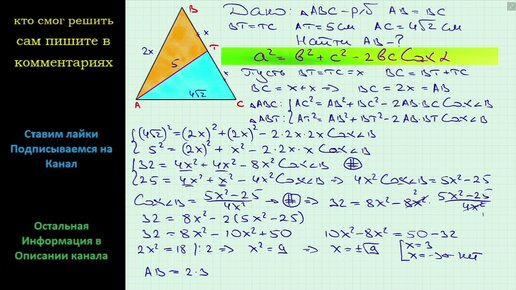 кто смог решить
сам пишите в
комментариях
Ставим лайки
Подписываемся на
Канал
Остальная
Информация в
Описании канала
B
x
2x
T
5
x
A
4√2
C
Дано: △ABC - р/б AB = BC
BT = TC AT = 5см AC = 4√2 см
Найти AB - ?
a² = b² + c² - 2bc Cos α
Пусть BT = TC = x BC = BT + TC
BC = x + x ⇒ BC = 2x = AB
△ABC: { AC² = AB² + BC² - 2AB·BC Cos∠B
△ABT: { AT² = AB² + BT² - 2AB·BT Cos∠B
{ (4√2)² = (2x)² + (2x)² - 2·2x·2x Cos∠B
{ 5² = (2x)² + x² - 2·2x·x Cos∠B
{ 32 = 4x² + 4x² - 8x² Cos∠B (#)
{ 25 = 4x² + x² - 4x² Cos∠B ⇒ 4x² Cos∠B = 5x² - 25
Cos∠B = (5x² - 25)/(4x²) ⇒ (#) ⇒ 32 = 8x² - 8x² · (5x² - 25)/(4x²)
32 = 8x² - 2(5x² - 25)
32 = 8x² - 10x² + 50 10x² - 8x² = 50 - 32
2x² = 18 |: 2 ⇒ x² = 9 ⇒ x = ±√9 [ x = 3
x = -3 - нет
AB = 2·3